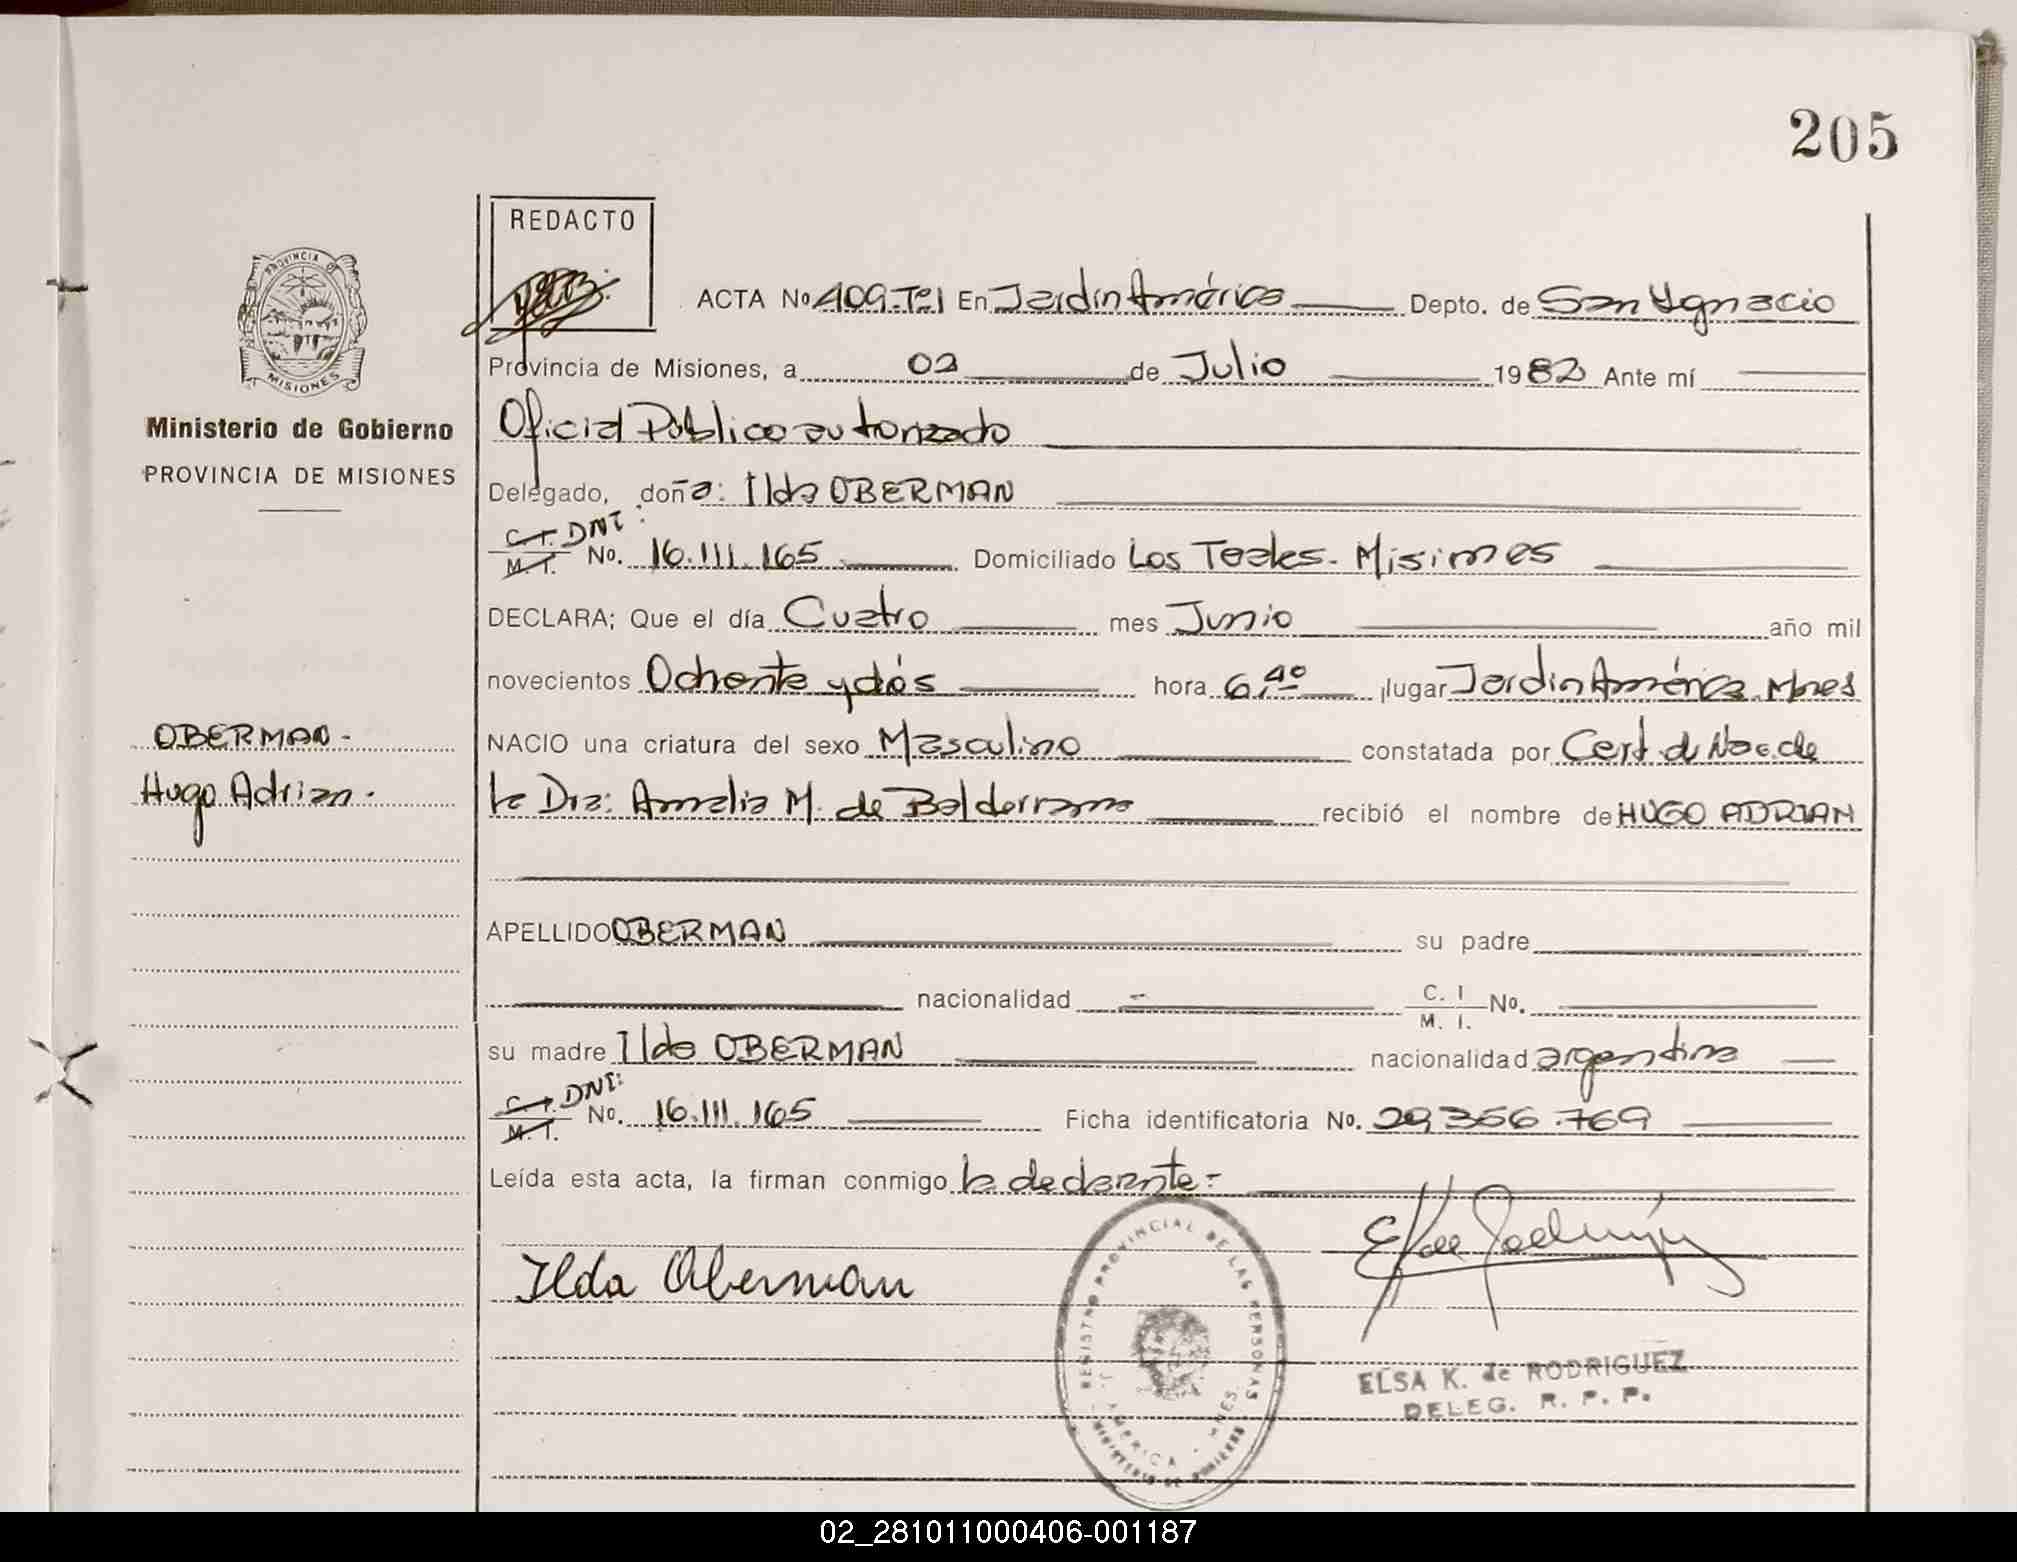 205
REDACTO
PROVINCIA DE
MISIONES
Ministerio de Gobierno
PROVINCIA DE MISIONES
ACTA No 409-Tº1 En Jardín América Depto. de San Ygnacio
Provincia de Misiones, a 02 de Julio 1982 Ante mí
Oficial Público autorizado
Delegado, doña: Ilda OBERMAN
C. I. DNI:
M. I. No. 16.111.165 Domiciliado Los Teales - Misiones
DECLARA; Que el día Cuatro mes Junio año mil
novecientos Ochenta y dós hora 6,40 lugar Jardín América Mnes
OBERMAN-
NACIO una criatura del sexo Masculino constatada por Cert. d Nac. de
Hugo Adrian.
la Dra: Amalia M. de Balderrama recibió el nombre de HUGO ADRIAN
APELLIDO OBERMAN su padre
nacionalidad C. I M. I. No.
su madre Ilda OBERMAN nacionalidad argentina
C. I. DNI:
M. I. No. 16.111.165 Ficha identificatoria No. 29,356.769
Leída esta acta, la firman conmigo la declarante-
Ilda Oberman
E K de Rodríguez
REGISTRO PROVINCIAL DE LAS PERSONAS
J. AMERICA - MNES.
MINISTERIO DE GOBIERNO
ELSA K. de RODRIGUEZ
DELEG. R. P. P.
02_281011000406-001187